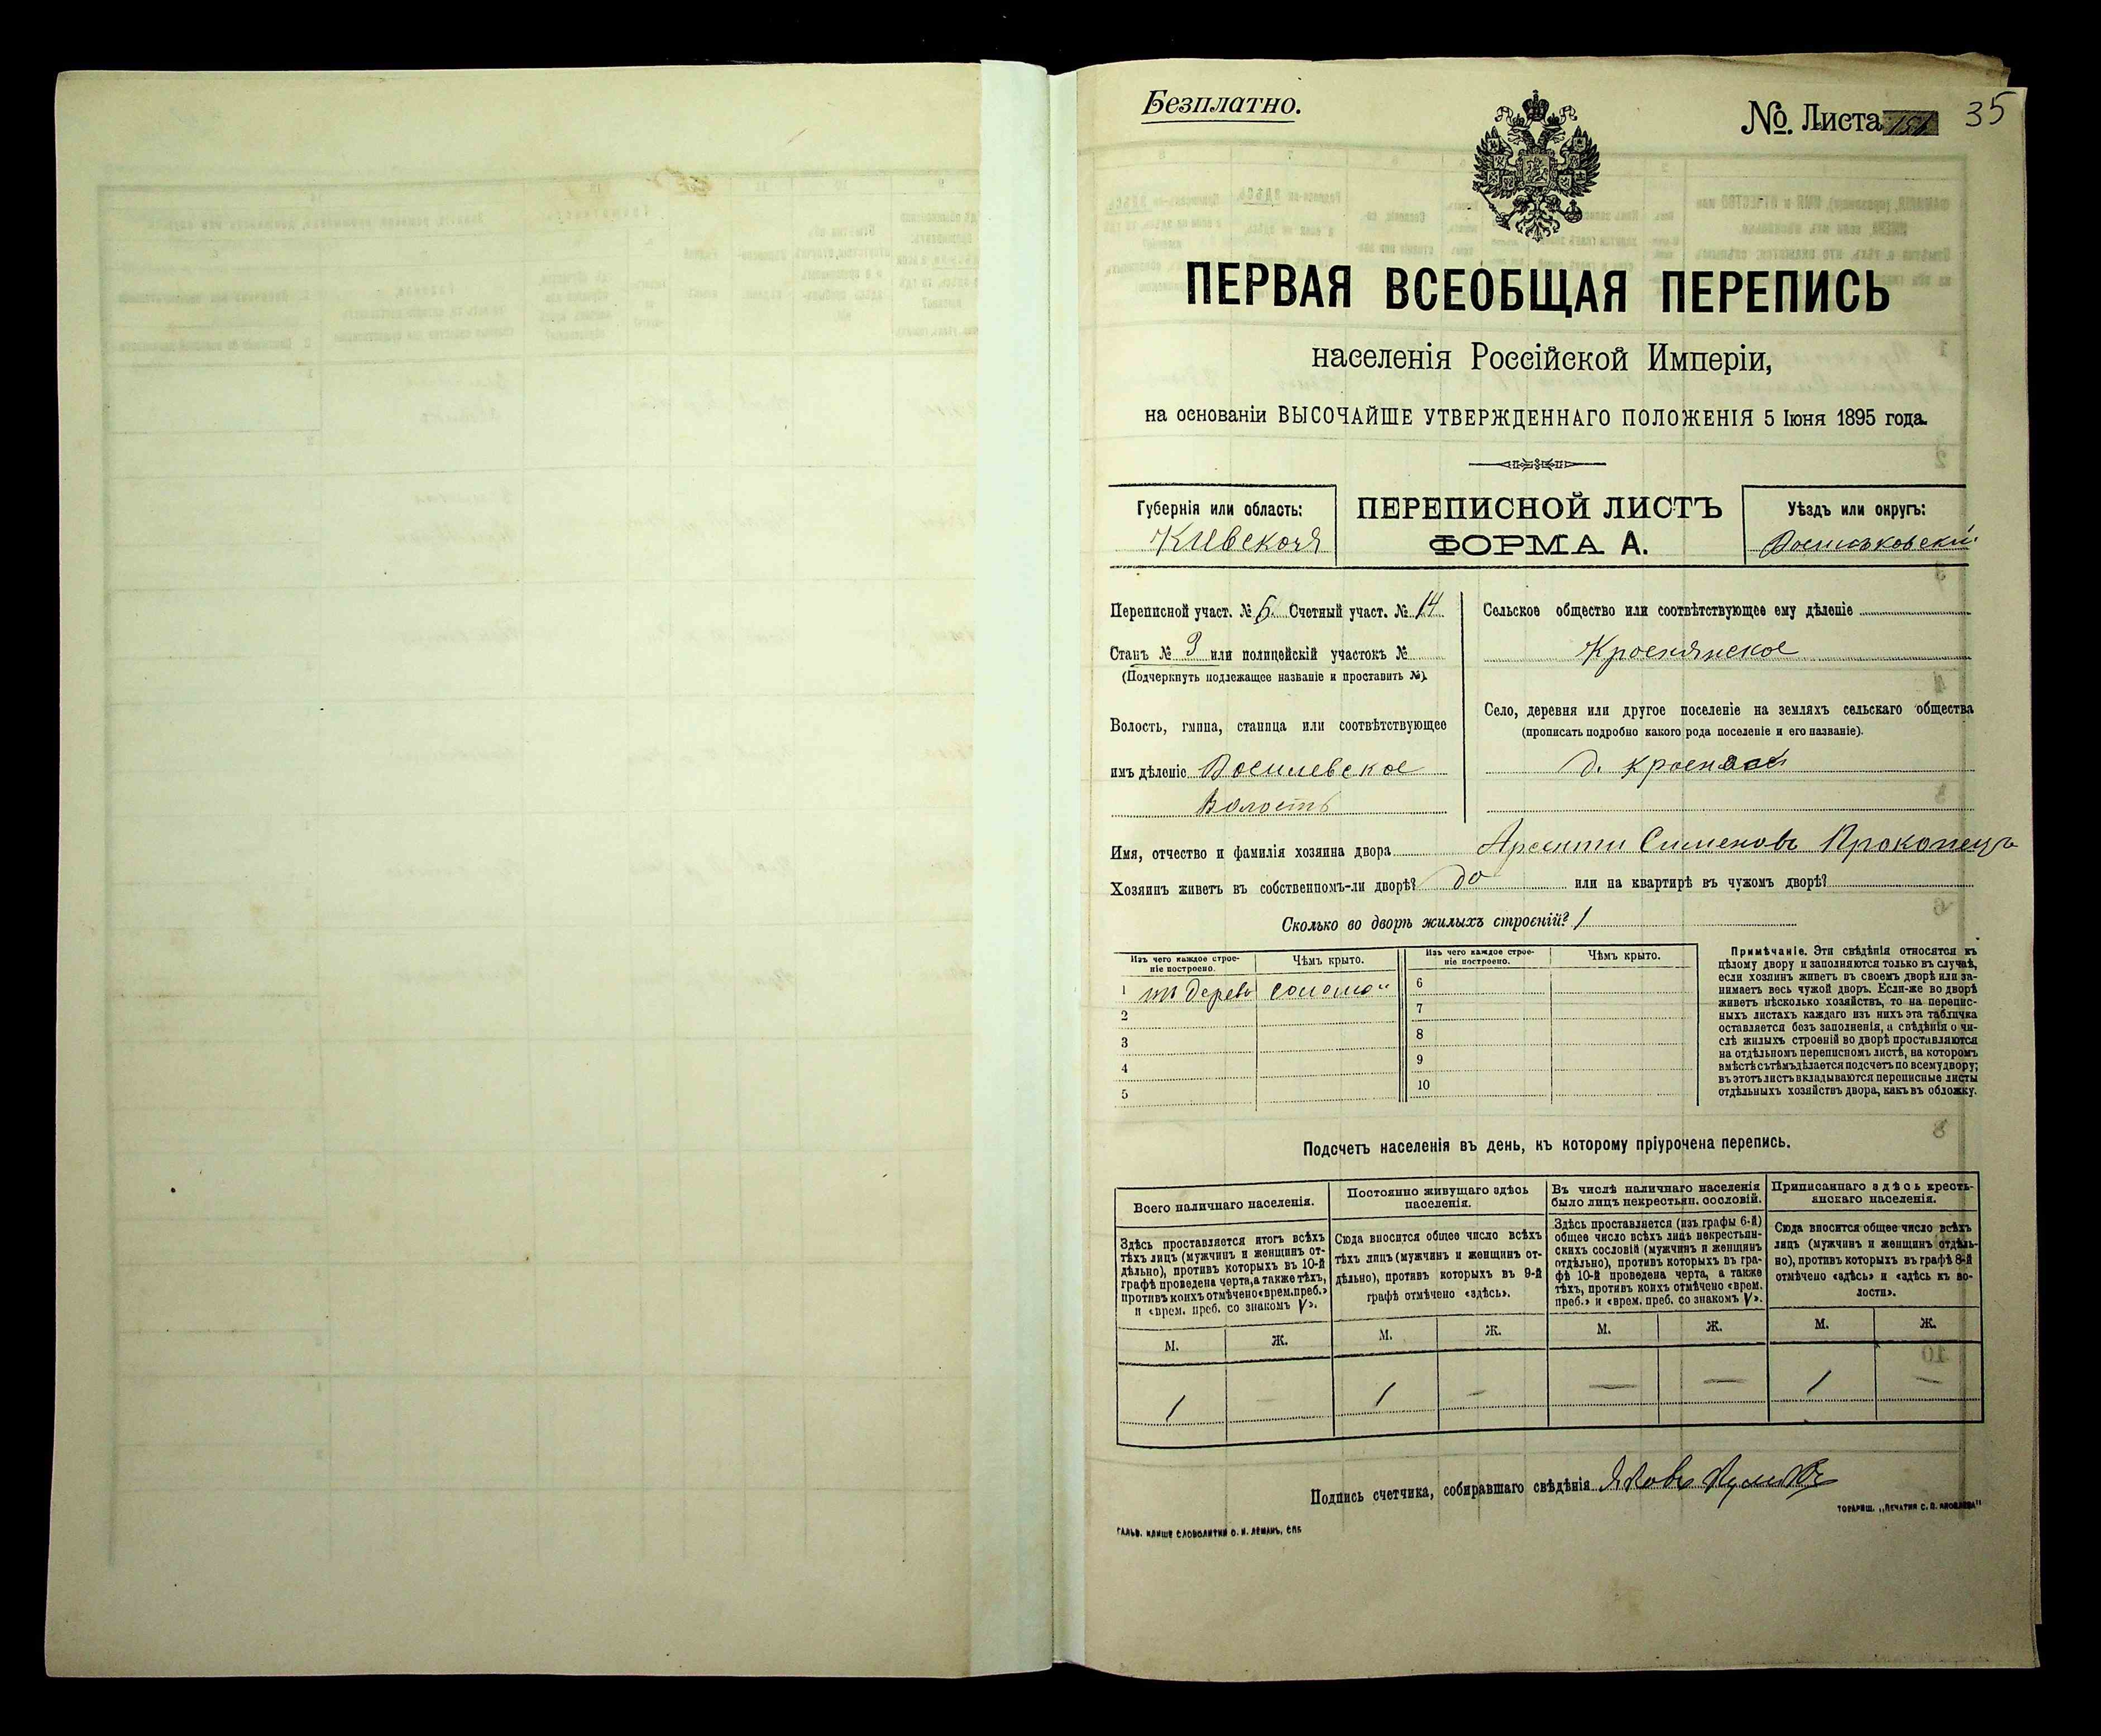 Безплатно.
№. Листа 35
ПЕРВАЯ ВСЕОБЩАЯ ПЕРЕПИСЬ
населенія Россійской Имперіи,
на основаніи ВЫСОЧАЙШЕ УТВЕРЖДЕННАГО ПОЛОЖЕНІЯ 5 Іюня 1895 года.
Губернія или область:
Кіевская
ПЕРЕПИСНОЙ ЛИСТЪ
ФОРМА А.
Уѣздъ или округъ:
Переписной участ. № 5. Счетный участ. № 14
Станъ № 3 или полицейскій участокъ №
(Подчеркнуть подлежащее названіе и проставить №).
Волость, гмина, станица или соотвѣтствующее
имъ дѣленіе
Волость
Сельское общество или соотвѣтствующее ему дѣленіе
Село, деревня или другое поселеніе на земляхъ сельскаго общества
(прописать подробно какого рода поселеніе и его названіе).
д.
Имя, отчество и фамилія хозяина двора Сименовъ Прокопецъ
Хозяинъ живетъ въ собственномъ-ли дворѣ? да или на квартирѣ въ чужомъ дворѣ?
Сколько во дворѣ жилыхъ строеній? 1
Изъ чего каждое строе-
ніе построено.
Чѣмъ крыто.
Изъ чего каждое строе-
ніе построено.
Чѣмъ крыто.
1 соломой 6
2 7
3 8
4 9
5 10
Примѣчаніе. Эти свѣдѣнія относятся къ
цѣлому двору и заполняются только въ случаѣ,
если хозяинъ живетъ въ своемъ дворѣ или за-
нимаетъ весь чужой дворъ. Если-же во дворѣ
живетъ нѣсколько хозяйствъ, то на перепис-
ныхъ листахъ каждаго изъ нихъ эта табличка
оставляется безъ заполненія, а свѣдѣнія о чи-
слѣ жилыхъ строеній во дворѣ проставляются
на отдѣльномъ переписномъ листѣ, на которомъ
вмѣстѣ съ тѣмъ дѣлается подсчетъ по всему двору;
въ этотъ листъ вкладываются переписные листы
отдѣльныхъ хозяйствъ двора, какъ въ обложку.
Подсчетъ населенія въ день, къ которому пріурочена перепись.
Всего наличнаго населенія.
Здѣсь проставляется итогъ всѣхъ
тѣхъ лицъ (мужчинъ и женщинъ от-
дѣльно), противъ которыхъ въ 10-й
графѣ проведена черта, а также тѣхъ,
противъ коихъ отмѣчено «врем. преб.»
и «врем. преб. со знакомъ V».
М. Ж.
1 —
Постоянно живущаго здѣсь
населенія.
Сюда вносится общее число всѣхъ
тѣхъ лицъ (мужчинъ и женщинъ от-
дѣльно), противъ которыхъ въ 9-й
графѣ отмѣчено «здѣсь».
М. Ж.
1 —
Въ числѣ наличнаго населенія
было лицъ некрестьян. сословій.
Здѣсь проставляется (изъ графы 6-й)
общее число всѣхъ лицъ некрестьян-
скихъ сословій (мужчинъ и женщинъ
отдѣльно), противъ которыхъ въ гра-
фѣ 10-й проведена черта, а также
тѣхъ, противъ коихъ отмѣчено «врем.
преб.» и «врем. преб. со знакомъ V».
М. Ж.
— —
Приписаннаго здѣсь кресть-
янскаго населенія.
Сюда вносится общее число всѣхъ
лицъ (мужчинъ и женщинъ отдѣль-
но), противъ которыхъ въ графѣ 8-й
отмѣчено «здѣсь» и «здѣсь къ во-
лости».
М. Ж.
1 —
Подпись счетчика, собиравшаго свѣдѣнія Яковъ
ТОВАРИЩ. „ПЕЧАТНЯ С. П. ЯКОВЛЕВА"
ГАЛЬВ. КЛИШЕ СЛОВОЛИТНИ О. И. ЛЕМАНЪ, СПБ